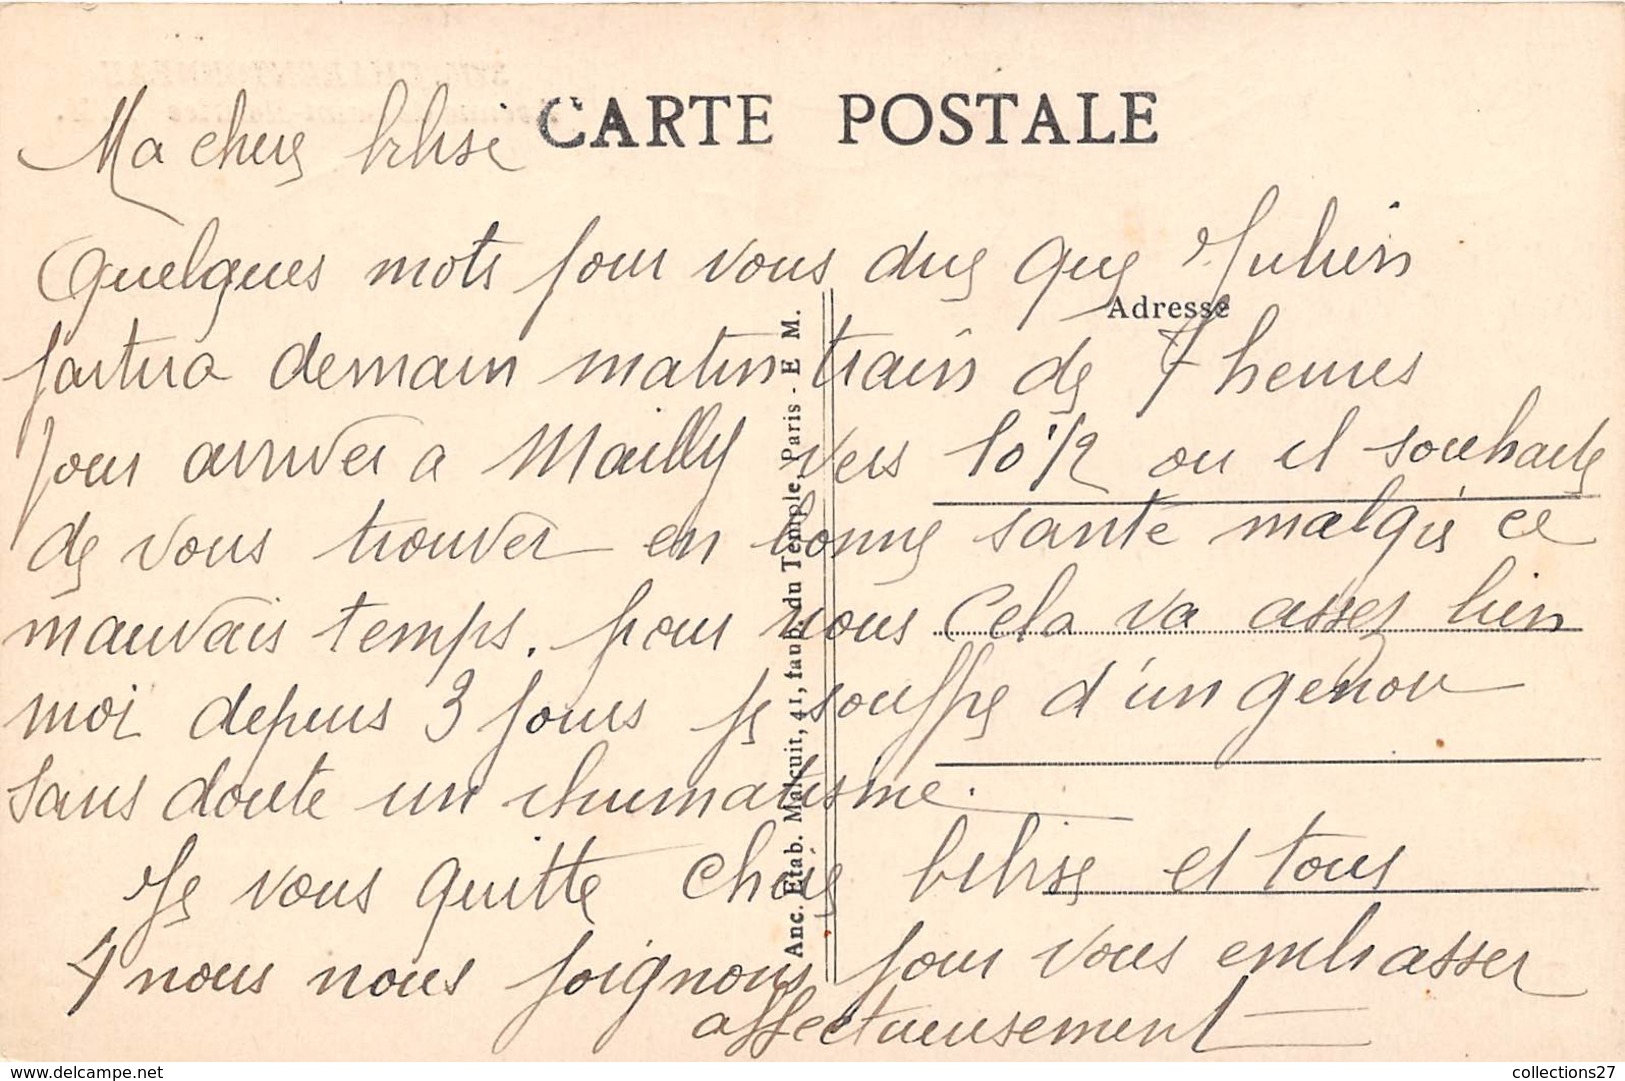 CARTE POSTALE
Ma chère
Quelques mots pour vous dire que Julien
Adresse
partira demain matin train de 7 heures
pour arriver a Mailly vers 10 1/2 ou il souhaite
de vous trouver en bonne santé malgré ce
mauvais temps. pour nous Cela va assez bien
moi depuis 3 jours je souffre d'un genou
sans doute un rhumatisme.
Je vous quitte Chère et tous
4 nous nous joignons pour vous embrasser
affectueusement
Anc. Etab. Malcuit, 41, faub. du Temple, Paris - E M.
collections27